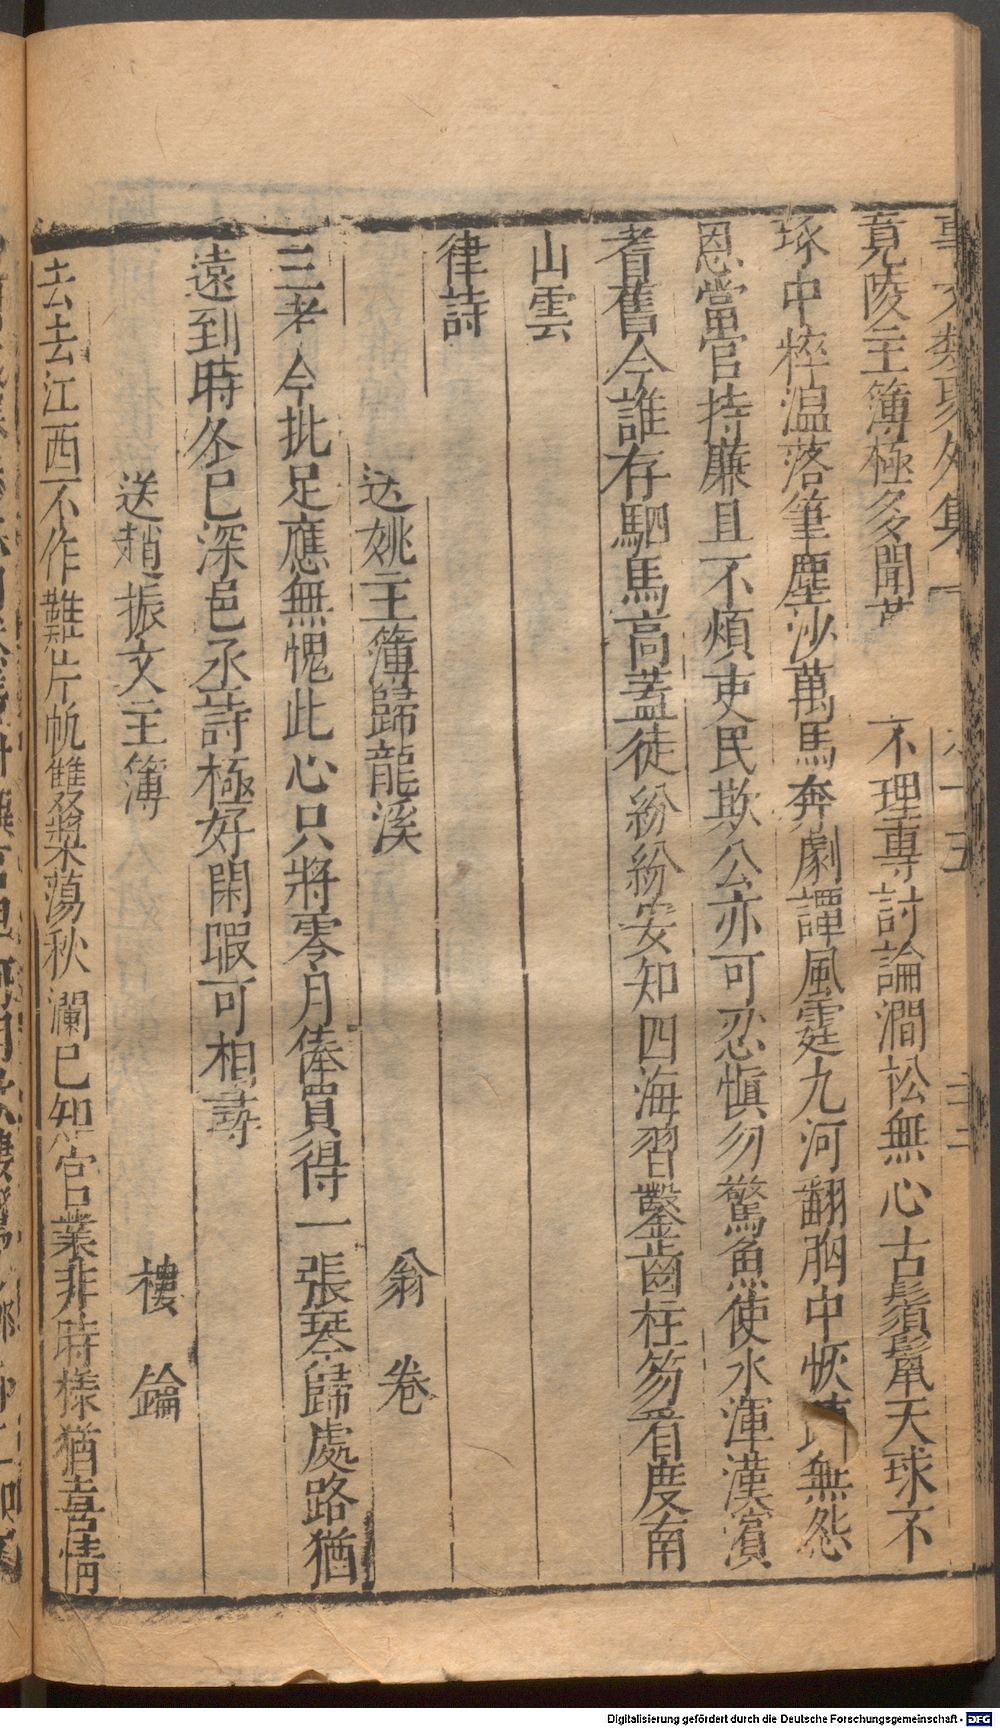 事文類聚外集 卷十五 三二
竟陵主簿極多聞 不理專討論澗松無心古鬚鬣天球不
琢中粹温落筆塵沙萬馬奔劇譚風霆九河翻胸中恢 無怨
恩當官持廉且不煩吏民欺公亦可忍慎勿驚魚使水渾漢濱
耆舊今誰存駟馬高蓋徒紛紛安知四海習鑿齒柱笏看度南
山雲
律詩
送姚主簿歸龍溪 翁卷
三考今批足應無愧此心只將零月俸買得一張琴歸處路猶
遠到時冬已深邑丞詩極好閑暇可相尋
送趙振文主簿 樓鑰
去去江西不作難片帆雙槳蕩秋瀾已知官業非時樣猶喜情
Digitalisierung gefördert durch die Deutsche Forschungsgemeinschaft - DFG